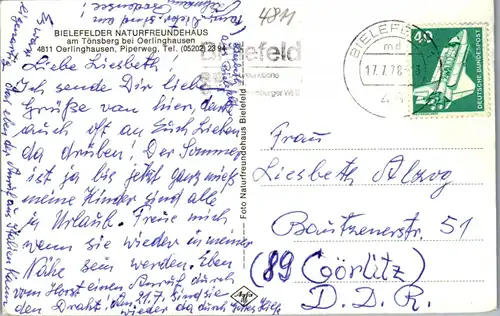 BIELEFELDER NATURFREUNDEHAUS
am Tönsberg bei Oerlinghausen
4811 Oerlinghausen, Piperweg, Tel. (05202) 23 94
Liebe Liesbeth!
Ich sende Dir liebe
Grüße von hier, denke
auch oft an Euch Lieben
da drüben! Der Sommer
ist ja bis jetzt ganz mieß
meine Kinder sind alle
in Urlaub. Freue mich
wenn sie wieder in meiner
Nähe sein werden. Eben
vom Horst einen Anruf durch
den Draht! Am 21.7. sind sie
wieder da durch Gottes Hilfe
Foto Naturfreundehaus Bielefeld
Agfa
4811
Bielefeld
BIELEFELD
md
17.7.78
40
DEUTSCHE BUNDESPOST
Frau
Liesbeth Alzog
Bautzenerstr. 51
(89 Görlitz)
D.D.R.